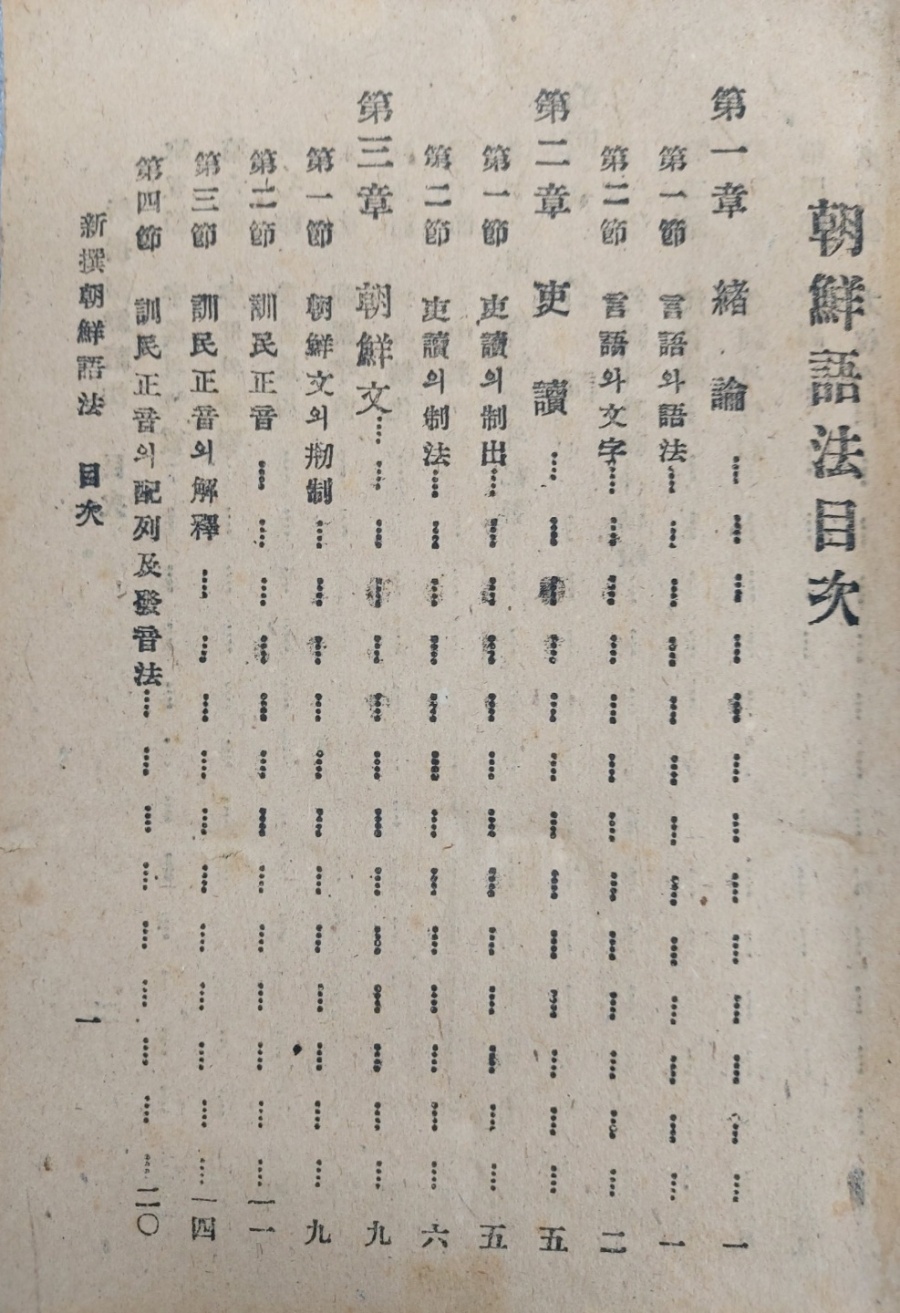 朝鮮語法目次
第一章 緖論……一
第一節 言語와語法……一
第二節 言語와文字……二
第二章 吏讀……五
第一節 吏讀의制出……五
第二節 吏讀의制法……六
第三章 朝鮮文……九
第一節 朝鮮文의刱制……九
第二節 訓民正音……一一
第三節 訓民正音의解釋……一四
第四節 訓民正音의配列及發音法……二〇
新撰朝鮮語法 目次 一